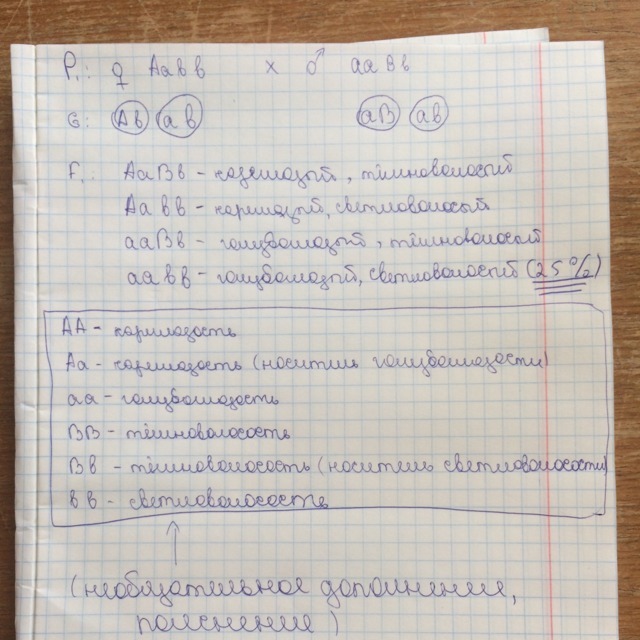 P₁: ♀ Aaвв x ♂ aaBв
G: Aв aв aB aв
F₁: AaBв - кареглазый, тёмноволосый
Aaвв - кареглазый, светловолосый
aaBв - голубоглазый, тёмноволосый
aaвв - голубоглазый, светловолосый (25%)
AA - кареглазость
Aa - кареглазость (носитель голубоглазости)
aa - голубоглазость
BB - тёмноволосость
Bв - тёмноволосость (носитель светловолосости)
вв - светловолосость
(необязательное дополнение,
пояснение)